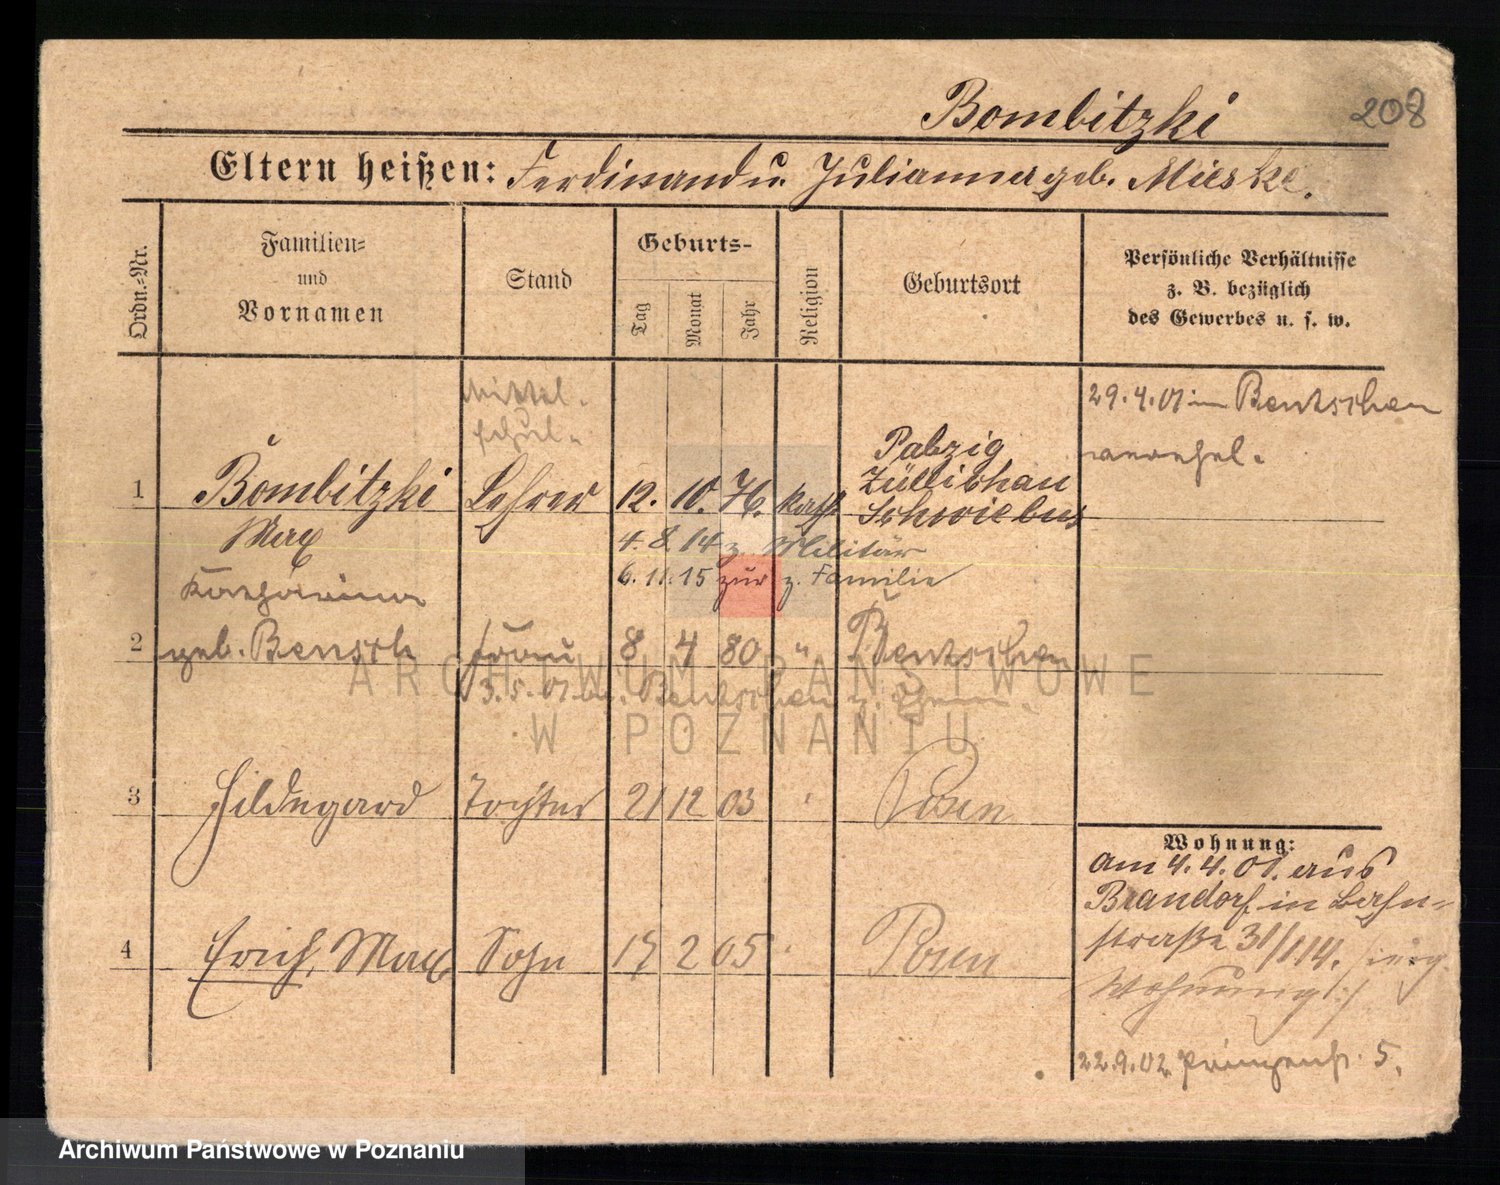 Bombitzki 208
Eltern heißen: Ferdinand u. Julianna geb. Mieske.
Ordn.-Nr.
Familien-
und
Vornamen
Stand
Geburts-
Tag
Monat
Jahr
Religion
Geburtsort
Persönliche Verhältnisse
z. B. bezüglich
des Gewerbes u. s. w.
Mittel-
schul-
29.4.01 in Bentschen
verehel.
1 Bombitzki Lehrer 12. 10. 76. kath Palzig
Züllichau
Schwiebus
Max
4. 8. 14 z. Militär
6. 11. 15 zur z. Familie
Katharina
2 geb. Bensch Frau 8 4 80 " Bentschen
3.5.01 Bentschen
3 Hildegard Tochter 21 12 03 Posen
4 Erich, Max Sohn 17 2 05 Posen
Wohnung:
am 4.4.01. aus
Brandorf in Bahn-
straße 31/114.
Wohnung
22.9.02 Prinzenstr. 5.
ARCHIWUM PAŃSTWOWE
W POZNANIU
Archiwum Państwowe w Poznaniu